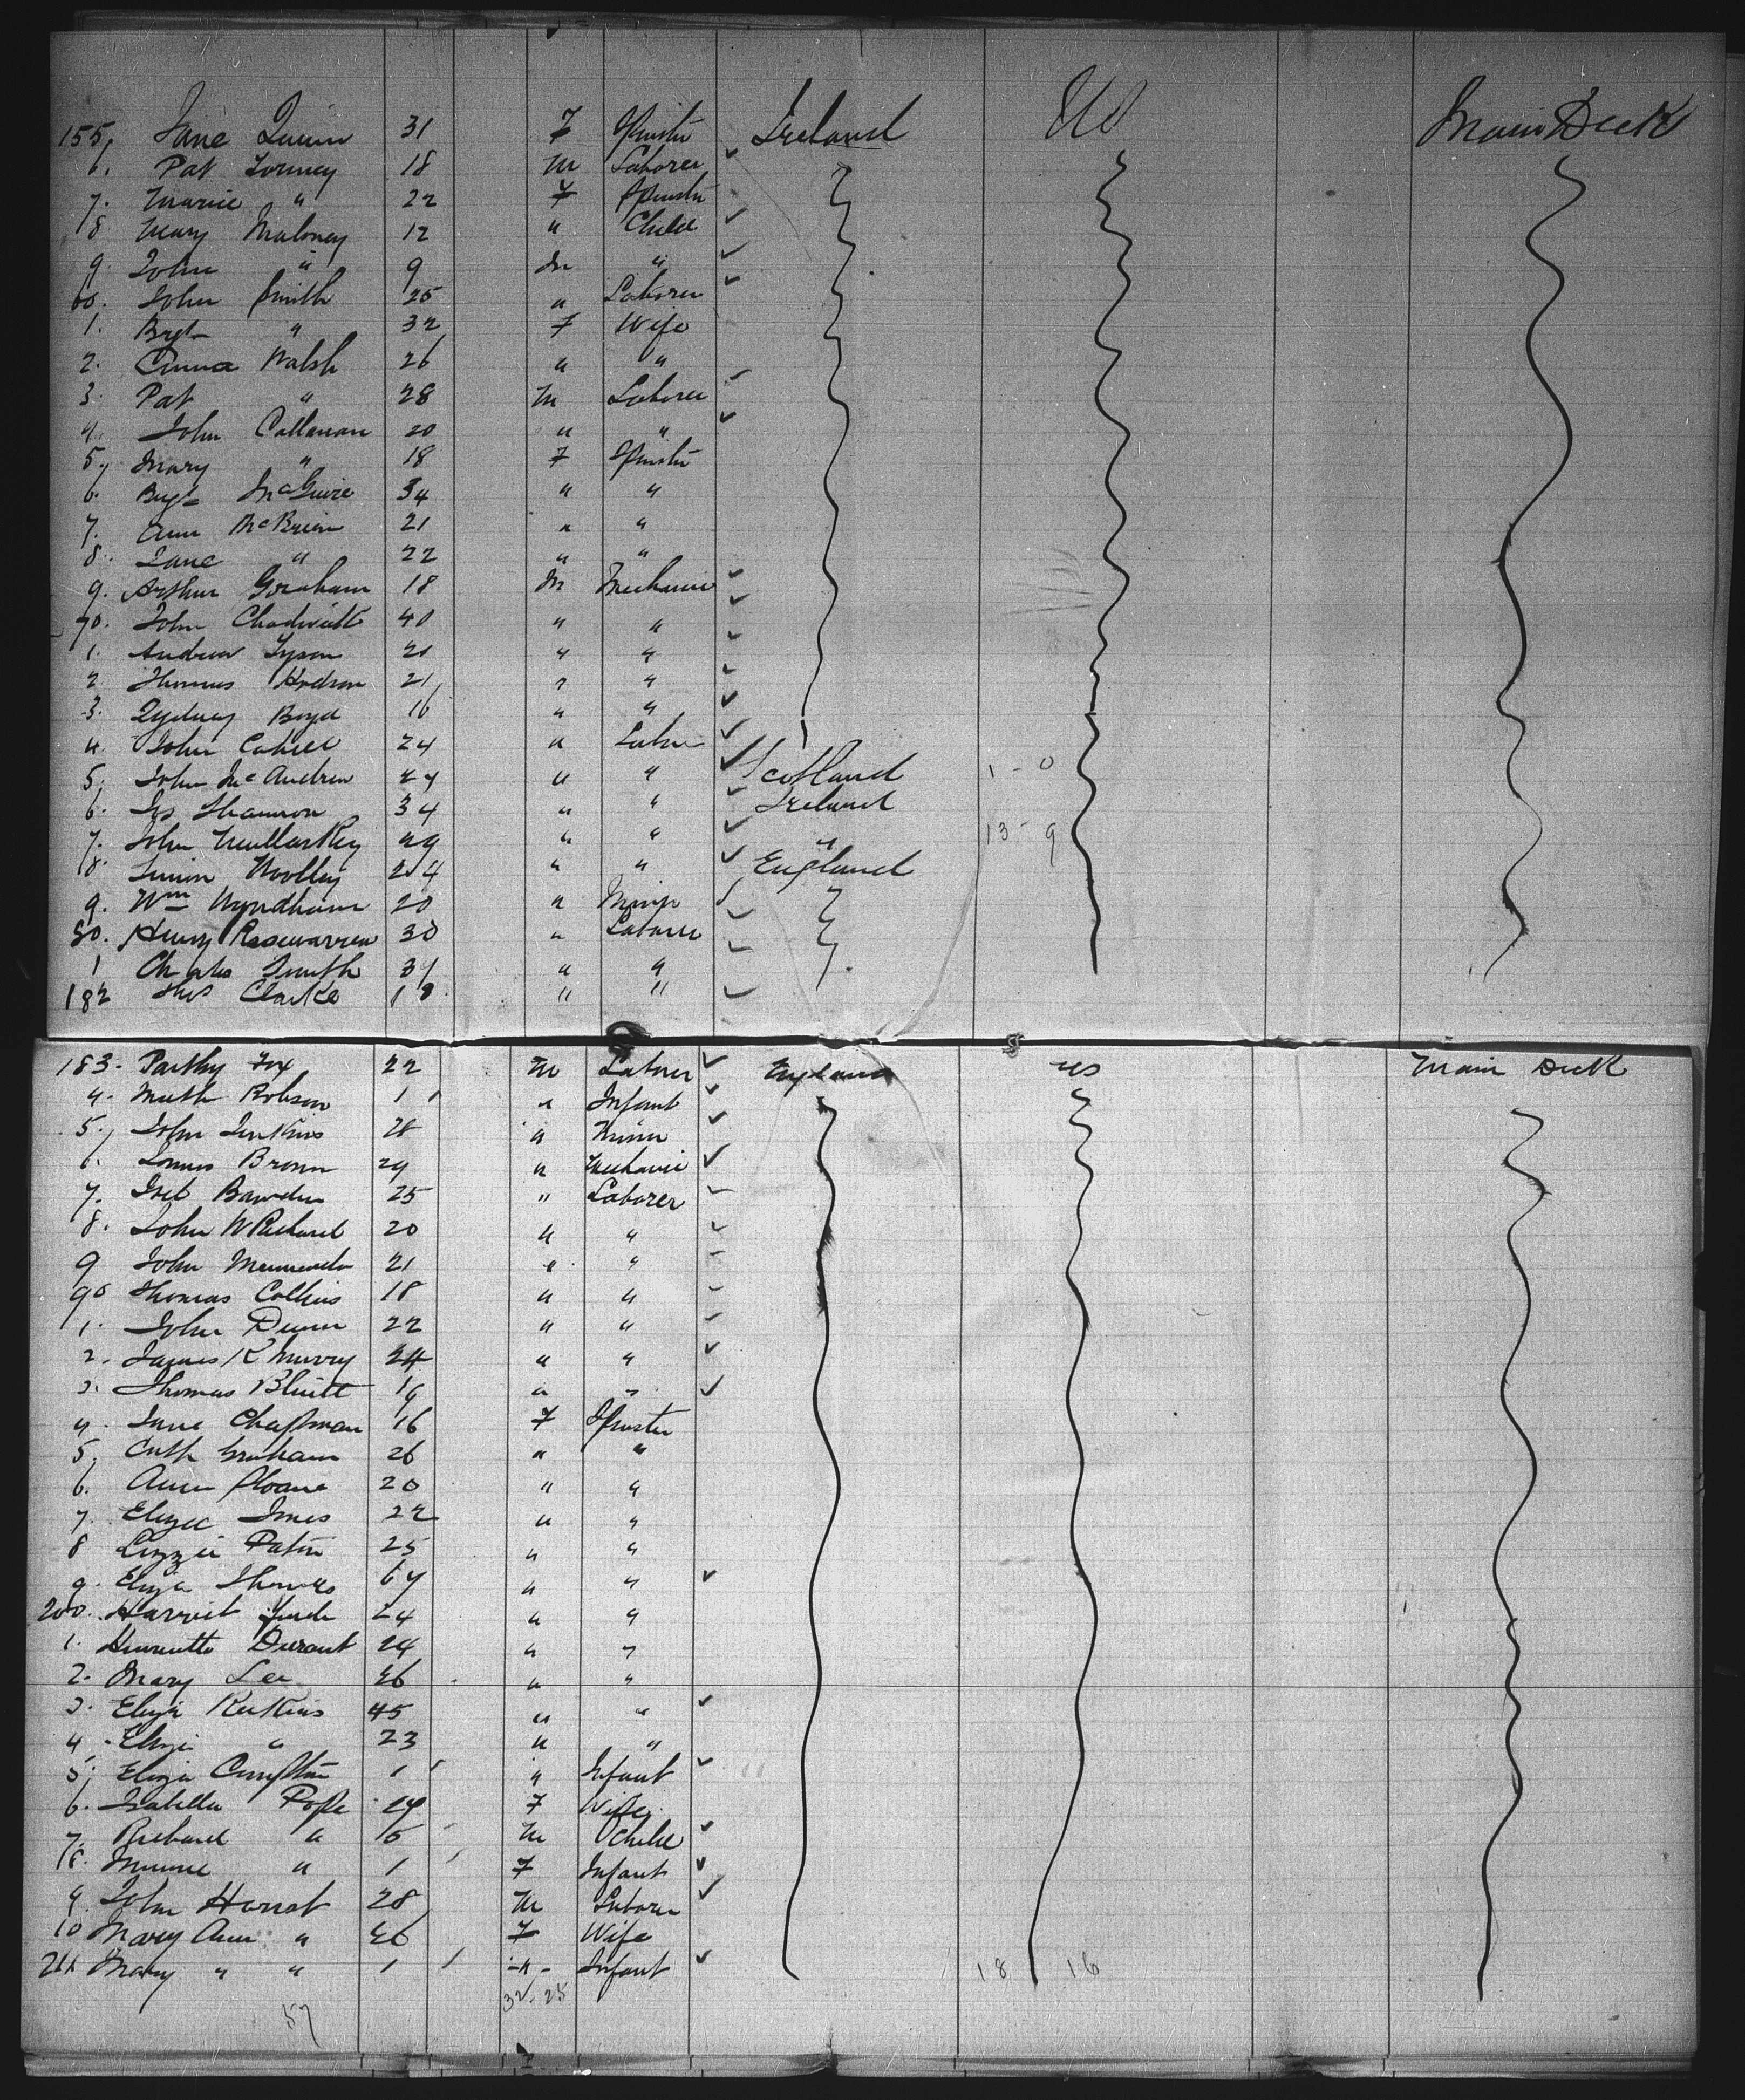 155. Jane Quinn 31 F Spinster Ireland US Main Deck
6. Pat 18 M Laborer
7. Marie " 22 F Spinster
8 Mary Maloney 12 " Child
9. John " 9 M "
60. John Smith 25 " Laborer
1. Bgt " 32 F Wife
2. Anna Walsh 26 " "
3. Pat " 28 M Laborer
4. John Callanan 20 " "
5. Mary " 18 F Spinster
6. Bgt McGuire 34 " "
7. Ann McBrien 21 " "
8. Jane " 22 " "
9. Arthur Graham 18 M Mechanic
70. John Chadwick 40 " "
1. Andrew Tyson 21 " "
2. Thomas Hodson 21 " "
3. Sydney Boyd 16 " "
4. John Cahill 24 " Labor
5. John McAndrew 24 " " Scotland 1 - 0
6. Jas Shannon 34 " " Ireland
7. John Mullarkey 29 " " " 13 - 9
8. Simon Woolley 24 " " England
9. Wm Wyndham 20 " Miner
80. Henry Rosewarren 30 " Laborer
1 Charles Smith 31 " "
182 Thos Clarke 18 " "
183. Fox 22 M Laborer England US Main Deck
4. Math Robson 1 " Infant
5. John Jenkins 28 " Miner
6. James Brown 29 " Mechanic
7. Bawden 25 " Laborer
8. John W Richard 20 " "
9 John 21 " "
90 Thomas Collins 18 " "
1. John Dunn 22 " "
2. James K Murry 24 " "
3. Thomas Bluitt 19 " "
4. Jane Chapman 16 F Spinster
5. Cath Graham 26 " "
6. Ann Sloane 20 " "
7. Elizee Imes 22 " "
8 Lizzie Paton 25 " "
9. Eliza Thomas 64 " "
200. Harriet 24 " "
1. Henrietta Durant 24 " "
2. Mary Lee 26 " "
3. Eliza 45 " "
4. Eliza " 23 " "
5. Eliza 1 " Infant
6. Isabella Pope 29 F Wife
7. Richard " 5 M Child
8. Minnie " 1 F Infant
9 John Harrat 28 M Laborer
10 Mary Ann " 26 F Wife
211 Mary " " 1 " Infant 18 16
32. 25
57